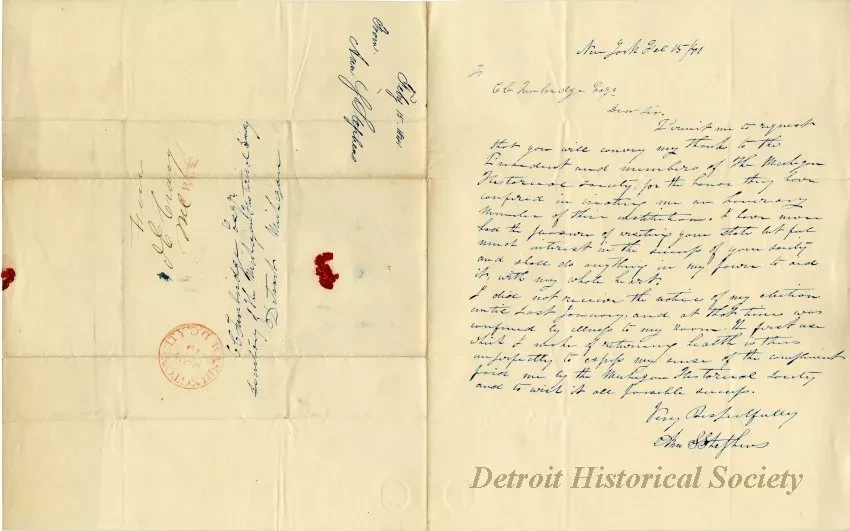 New York Feb 15/41
To
C C Trowbridge Esqr
Dear Sir,
Permit me to request
that you will convey my thanks to the
President and members of the Michigan
Historical society, for the honor they have
confered in creating me an honorary
Member of their institution. I have never
had the pleasure of visiting your state but feel
much interest in the success of your society
and shall do anything in my power to aid
it with my whole heart.
I did not receive the notice of my election
until last January, and at that time was
confined by illness to my room. The first use
that I make of returning health is thus
imperfectly to express my sense of the compliment
paid me by the Michigan Historical society
and to wish it all possible success.
Very Respectfully
Ann S Stephens
From.
Ann S Stephens
Feby 15. 1841
Free
Trowbridge Esqr
Secretary of the Michigan Historical Society
Detroit Michigan
Detroit Historical Society